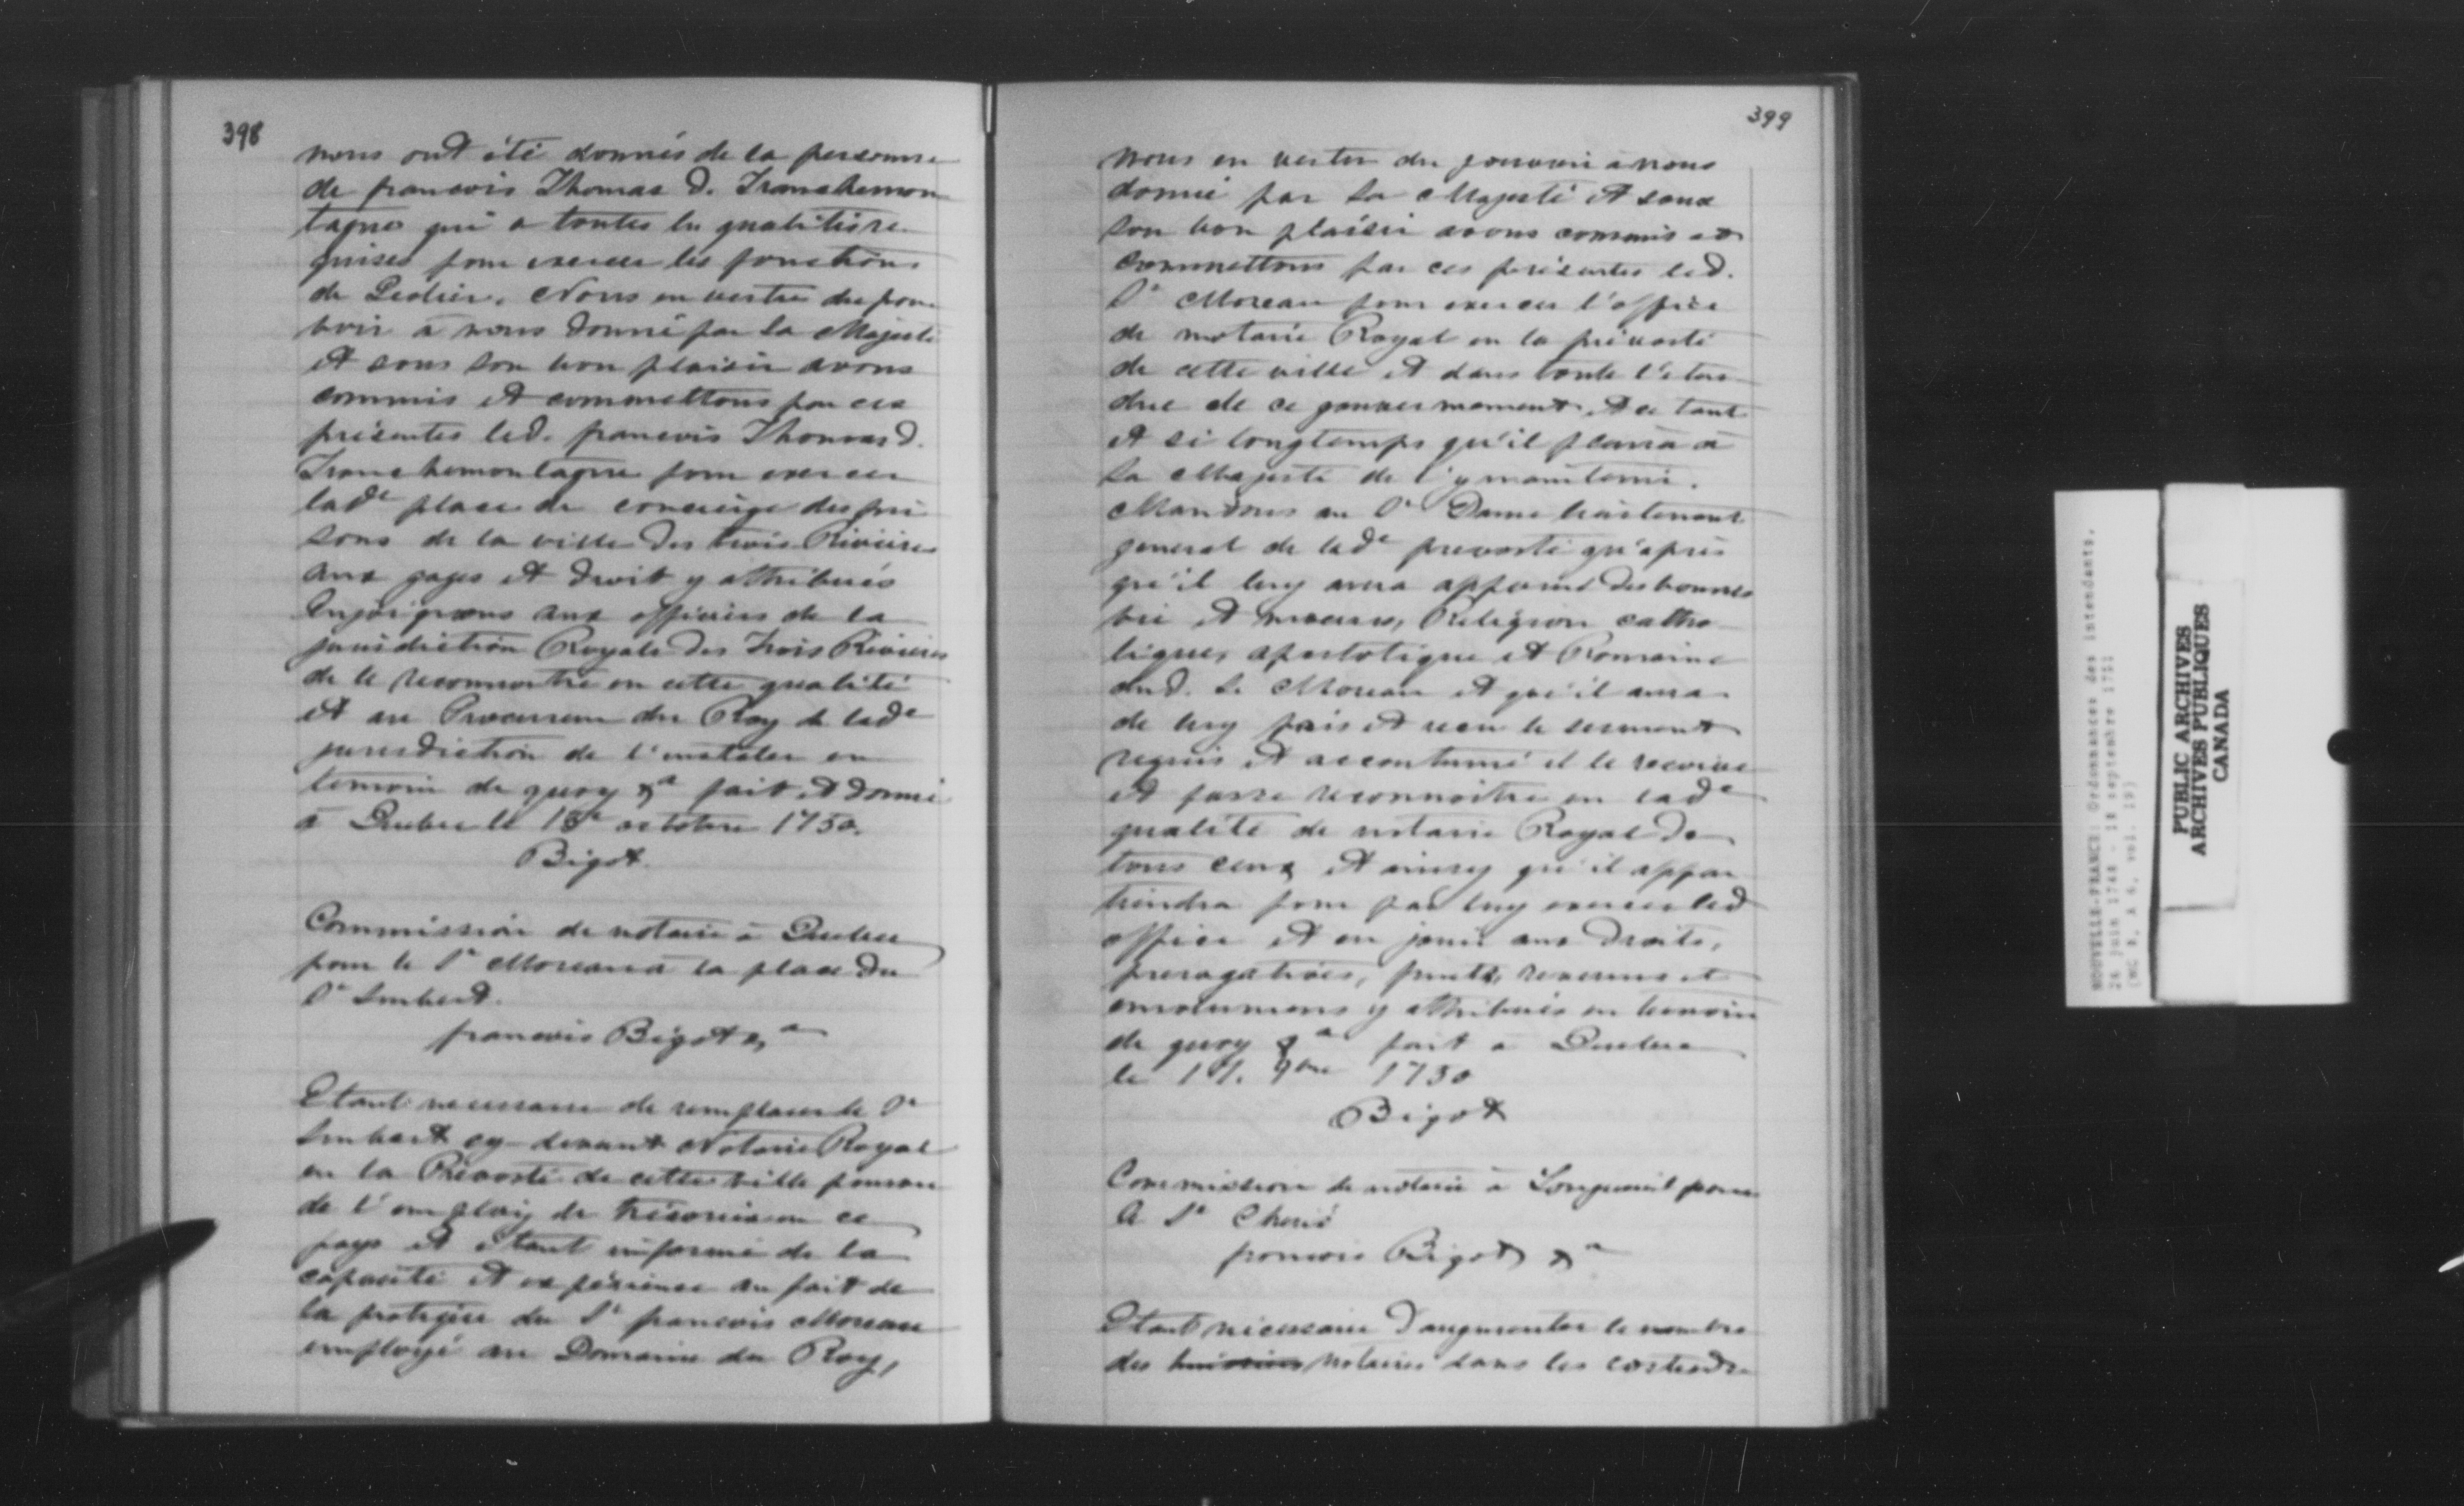 398
nous ont été donnés de la personne
de francois Thomas d. Tranchemon
tagne qui a toutes les qualités re
quises pour exercer les fonctions
de Geolier. Nous en vertu du pou
voir à nous donné par Sa Majesté
et sous son bon plaisir avons
commis et commettons par ces
présentes led. francois Thomas d.
Tranchemontagne pour exercer
lade place de concierge des pri
sons de la ville des trois Rivieres
aux gages et droit y attribués
Enjoignons aux officiers de la
jurisdiction Royale des Trois Rivieres
de le reconnoitre en cette qualité
et au Procureur du Roy de lade
jurisdiction de l'instaler en
temoin de quoy &a fait et donné
à Quebec le 18e octobre 1750.
Bigot
Commission de notaire à Quebec
pour le Sr Moreau à la place du
Sr Imbert.
francois Bigot &a
Etant necessaire de remplacer le Sr
Imbert cy-devant Notaire Royal
en la Prévosté de cette ville pourvu
de l'employ de trésorier en ce
pays et étant informé de la
capacité et expérience au fait de
la pratique du Sr francois Moreau
employé au Domaine du Roy,
399
nous en vertu du pouvoir à nous
donné par Sa Majesté et sous
son bon plaisir avons commis et
commettons par ces présentes led.
Sr Moreau pour exercer l'office
de notaire Royal en la prévosté
de cette ville et dans toute l'éten
due de ce gouvernement. et ce tant
et si longtemps qu'il plaira à
Sa Majesté de l'y maintenir.
Mandons au Sr Daine lieutenant
general de lade prevosté qu'apres
qu'il luy aura apparu des bonnes
vie et moeurs, Religion catho
lique, apostolique et Romaine
dud. Sr Moreau et qu'il aura
de luy pris et recu le serment
requis et accoutumé il le recoive
et fasse reconnoitre en lade
qualité de notaire Royal de
tous ceux et ainsy qu'il appar
tiendra pour par luy exercer led
office et en jouir aux droits,
prerogatives, fruits, revenus et
emolumens y attribués en temoin
de quoy &a fait à Quebec
le 9bre 1750
Bigot
Commission de notaire à Longueuil pour
le Sr
francois Bigot &a
Etant nécessaire d'augmenter le nombre
des notaires dans les costes de
PUBLIC ARCHIVES
ARCHIVES PUBLIQUES
CANADA
NOUVELLE-FRANCE: Ordonnances des intendants.